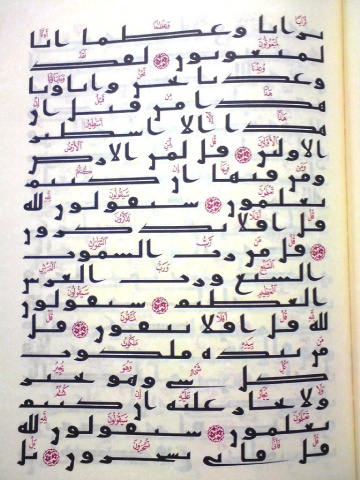 ترابا وعظما انا
لمبعوثون لقد
وعدنا نحن واباونا
هذا من قبل ان
هذا الا اسطير
الاولين قل لمن الارض
ومن فيها ان كنتم
تعلمون سيقولون لله
قل افلا تذكرون
قل من رب السموت
السبع ورب العرش
العظيم سيقولون
لله قل افلا تتقون قل
من بيده ملكوت
كل شي وهو يجير
ولا يجار عليه ان كنتم
تعلمون سيقولون لله
قل فانى تسحرون بل